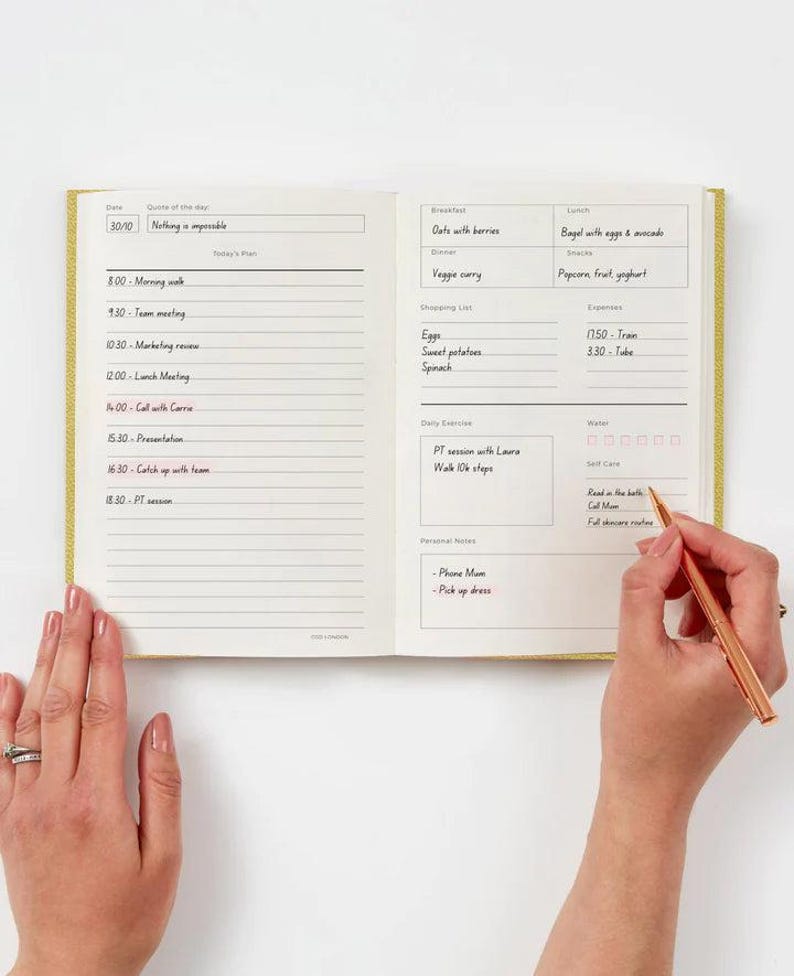 Date Quote of the day:
30/10 Nothing is impossible
Today's Plan
8:00 - Morning walk
9:30 - Team meeting
10:30 - Marketing review
12:00 - Lunch Meeting
14:00 - Call with Carrie
15:30 - Presentation
16:30 - Catch up with team
18:30 - PT session
CGD LONDON
Breakfast Lunch
Oats with berries Bagel with eggs & avocado
Dinner Snacks
Veggie curry Popcorn, fruit, yoghurt
Shopping List Expenses
Eggs 17.50 - Train
Sweet potatoes 3.30 - Tube
Spinach
Daily Exercise Water
PT session with Laura
Walk 10k steps
Self Care
Read in the bath
Call Mum
Full skincare routine
Personal Notes
- Phone Mum
- Pick up dress